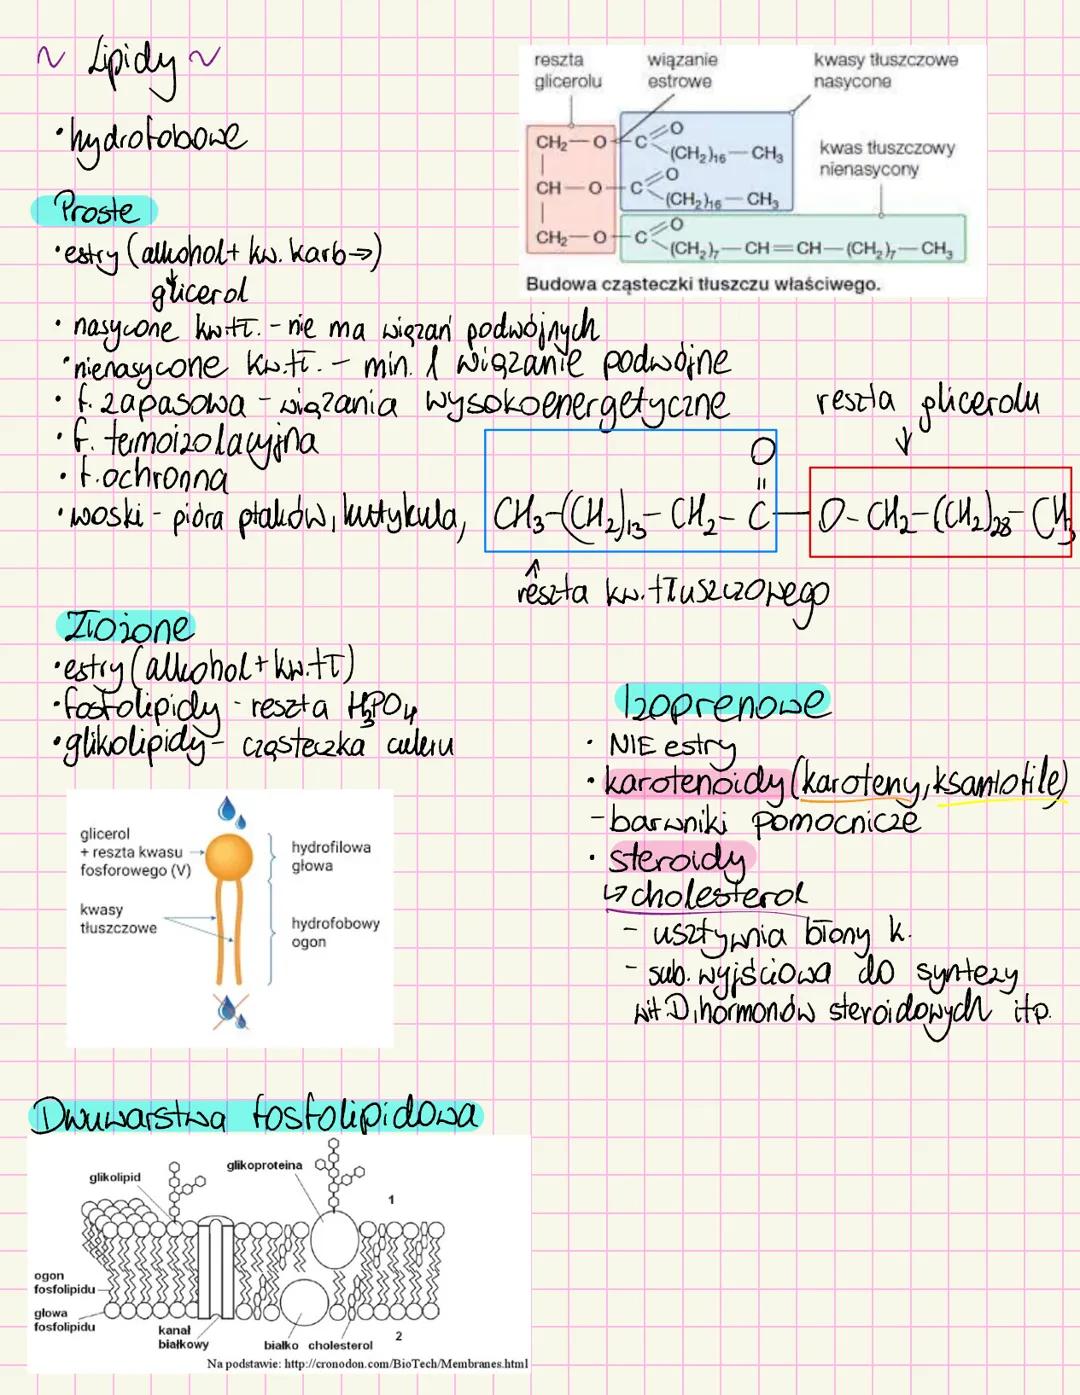 ~ Lipidy ~
• hydrofobowe
Proste
• estry (alkohol + kw. karb →)
glicerol
• nasycone kw.tł. - nie ma wiązań podwójnych
• nienasycone kw.tł. - min. 1 wiązanie podwójne
• f. zapasowa - wiązania wysokoenergetyczne
• f. termoizolacyjna
• f. ochronna
• woski - pióra ptaków, kutykula,
reszta glicerolu
wiązanie estrowe
kwasy tłuszczowe nasycone
kwas tłuszczowy nienasycony
CH₂—O—C=O (CH₂)₁₆—CH₃
CH—O—C=O (CH₂)₁₆—CH₃
CH₂—O—C=O (CH₂)₇—CH=CH—(CH₂)₇—CH₃
Budowa cząsteczki tłuszczu właściwego.
reszta glicerolu
↓
O
||
CH₃-(CH₂)₁₃-CH₂-C-O-CH₂-(CH₂)₂₈-CH₃
↑
reszta kw. tłuszczowego
Złożone
• estry (alkohol + kw.tł)
• fosfolipidy - reszta H₃PO₄
• glikolipidy - cząsteczka cukru
glicerol
+ reszta kwasu
fosforowego (V)
kwasy
tłuszczowe
hydrofilowa
głowa
hydrofobowy
ogon
Izoprenowe
• NIE estry
• karotenoidy (karoteny, ksantofile)
- barwniki pomocnicze
• steroidy
↳ cholesterol
- usztywnia błony k.
- sub. wyjściowa do syntezy
wit D, hormonów steroidowych itp.
Dwuwarstwa fosfolipidowa
glikolipid
glikoproteina
1
ogon
fosfolipidu
głowa
fosfolipidu
kanał
białkowy
białko
cholesterol
2
Na podstawie: http://cronodon.com/BioTech/Membranes.html